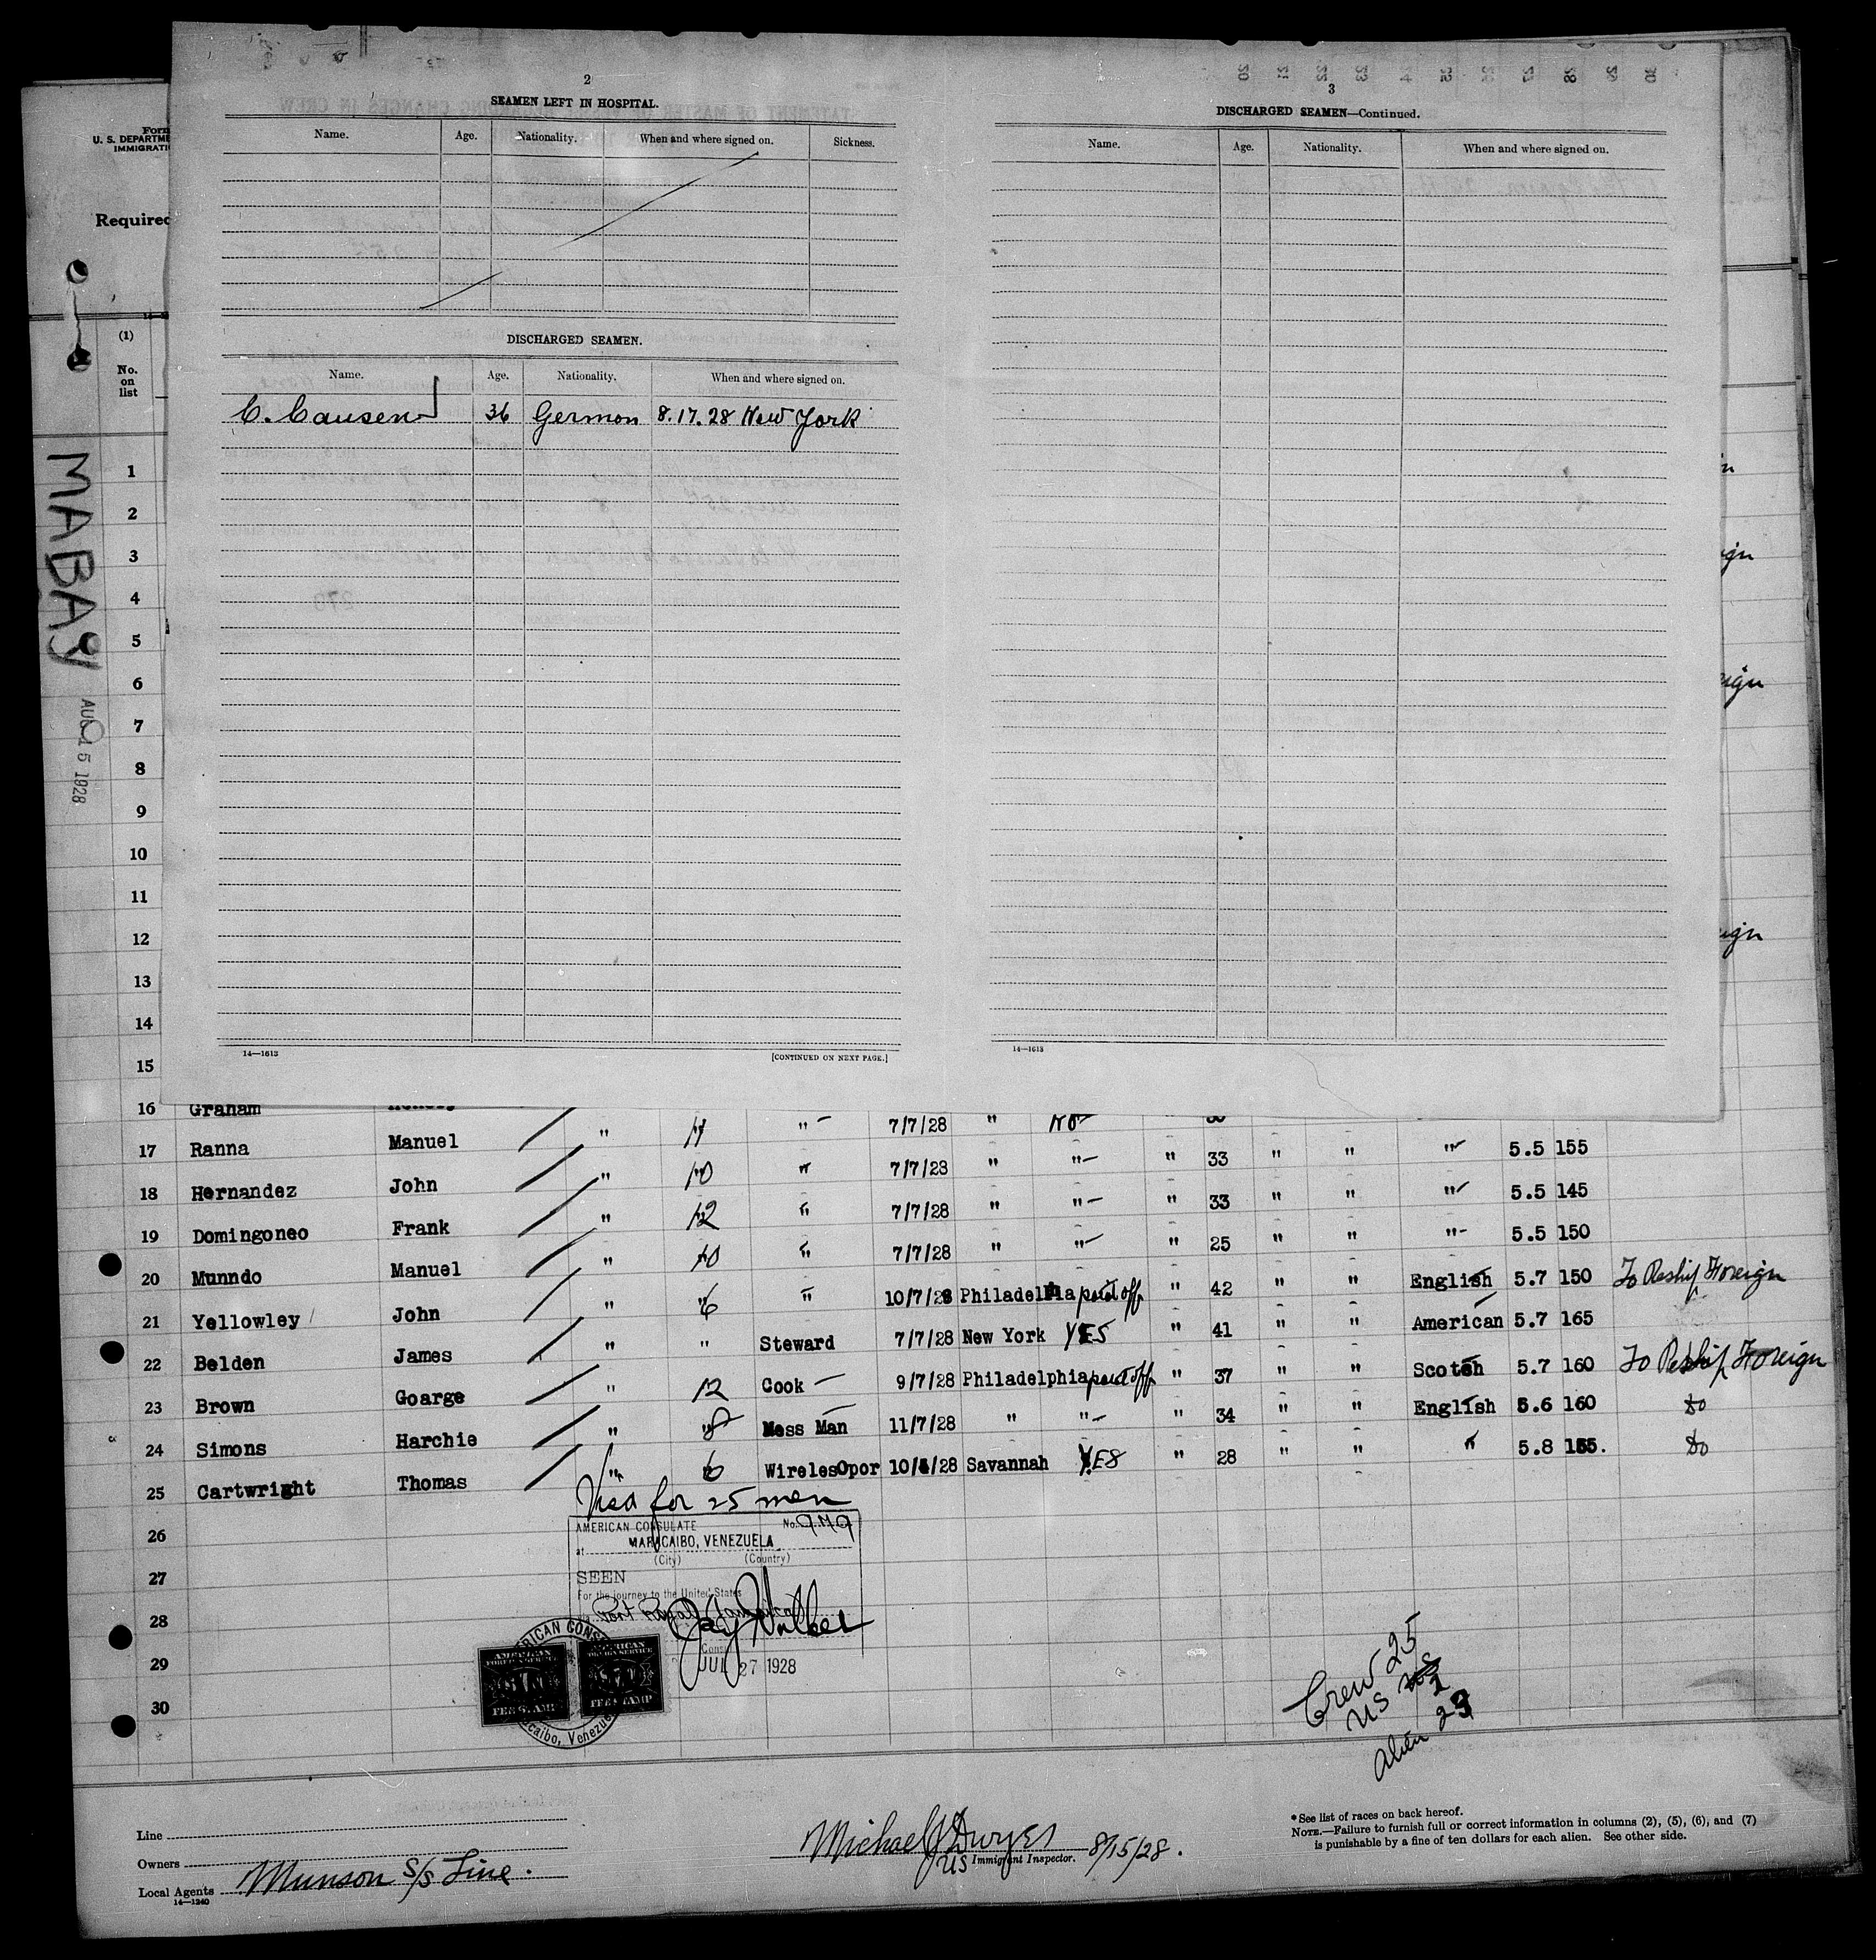 2
SEAMEN LEFT IN HOSPITAL.
Name. Age. Nationality. When and where signed on. Sickness.
DISCHARGED SEAMEN.
Name. Age. Nationality. When and where signed on.
C. Causen 36 German 8.17.28 New York
14—1613 [CONTINUED ON NEXT PAGE.]
3
DISCHARGED SEAMEN—Continued.
Name. Age. Nationality. When and where signed on.
14—1613
Form
U. S. DEPARTME
IMMIGRATI
Required
(1)
No.
on
list
MABAY
AUG 15 1928
1
2
3
4
5
6
7
8
9
10
11
12
13
14
15
16 Graham
17 Ranna Manuel " 11 " 7/7/28 " No
18 Hernandez John " 10 " 7/7/28 " " " 33 " " " 5.5 155
19 Domingoneo Frank " 12 " 7/7/28 " " " 33 " " " 5.5 145
20 Munndo Manuel " 10 " 7/7/28 " " " 25 " " " 5.5 150
21 Yellowley John " 6 " 10/7/28 Philadelphia paid off " 42 " " English 5.7 150 To Reship Foreign
22 Belden James " " Steward 7/7/28 New York YES " 41 " " American 5.7 165
23 Brown Goarge " 12 Cook 9/7/28 Philadelphia paid off " 37 " " Scotch 5.7 160 To Reship Foreign
24 Simons Harchie " 8 Mess Man 11/7/28 " " " 34 " " English 5.6 160 do
25 Cartwright Thomas " 6 WirelesOpor 10/4/28 Savannah YES " 28 " " " 5.8 155. do
26
27
28
29
30
Visa for 25 men
AMERICAN CONSULATE No. 979
at MARACAIBO, VENEZUELA
(City) (Country)
SEEN
For the journey to the United States
Port Royal Jamaica
Jay Walker
JUL 27 1928
AMERICAN
FEE STAMP
AMERICAN
FOREIGN SERVICE
FEE STAMP
Crew 25
US 2
Alien 23
Line
Owners
Local Agents Munson S/S Line.
14—1240
Michael J Dwyer 8/15/28.
US Immigrant Inspector.
* See list of races on back hereof.
NOTE.—Failure to furnish full or correct information in columns (2), (5), (6), and (7)
is punishable by a fine of ten dollars for each alien. See other side.